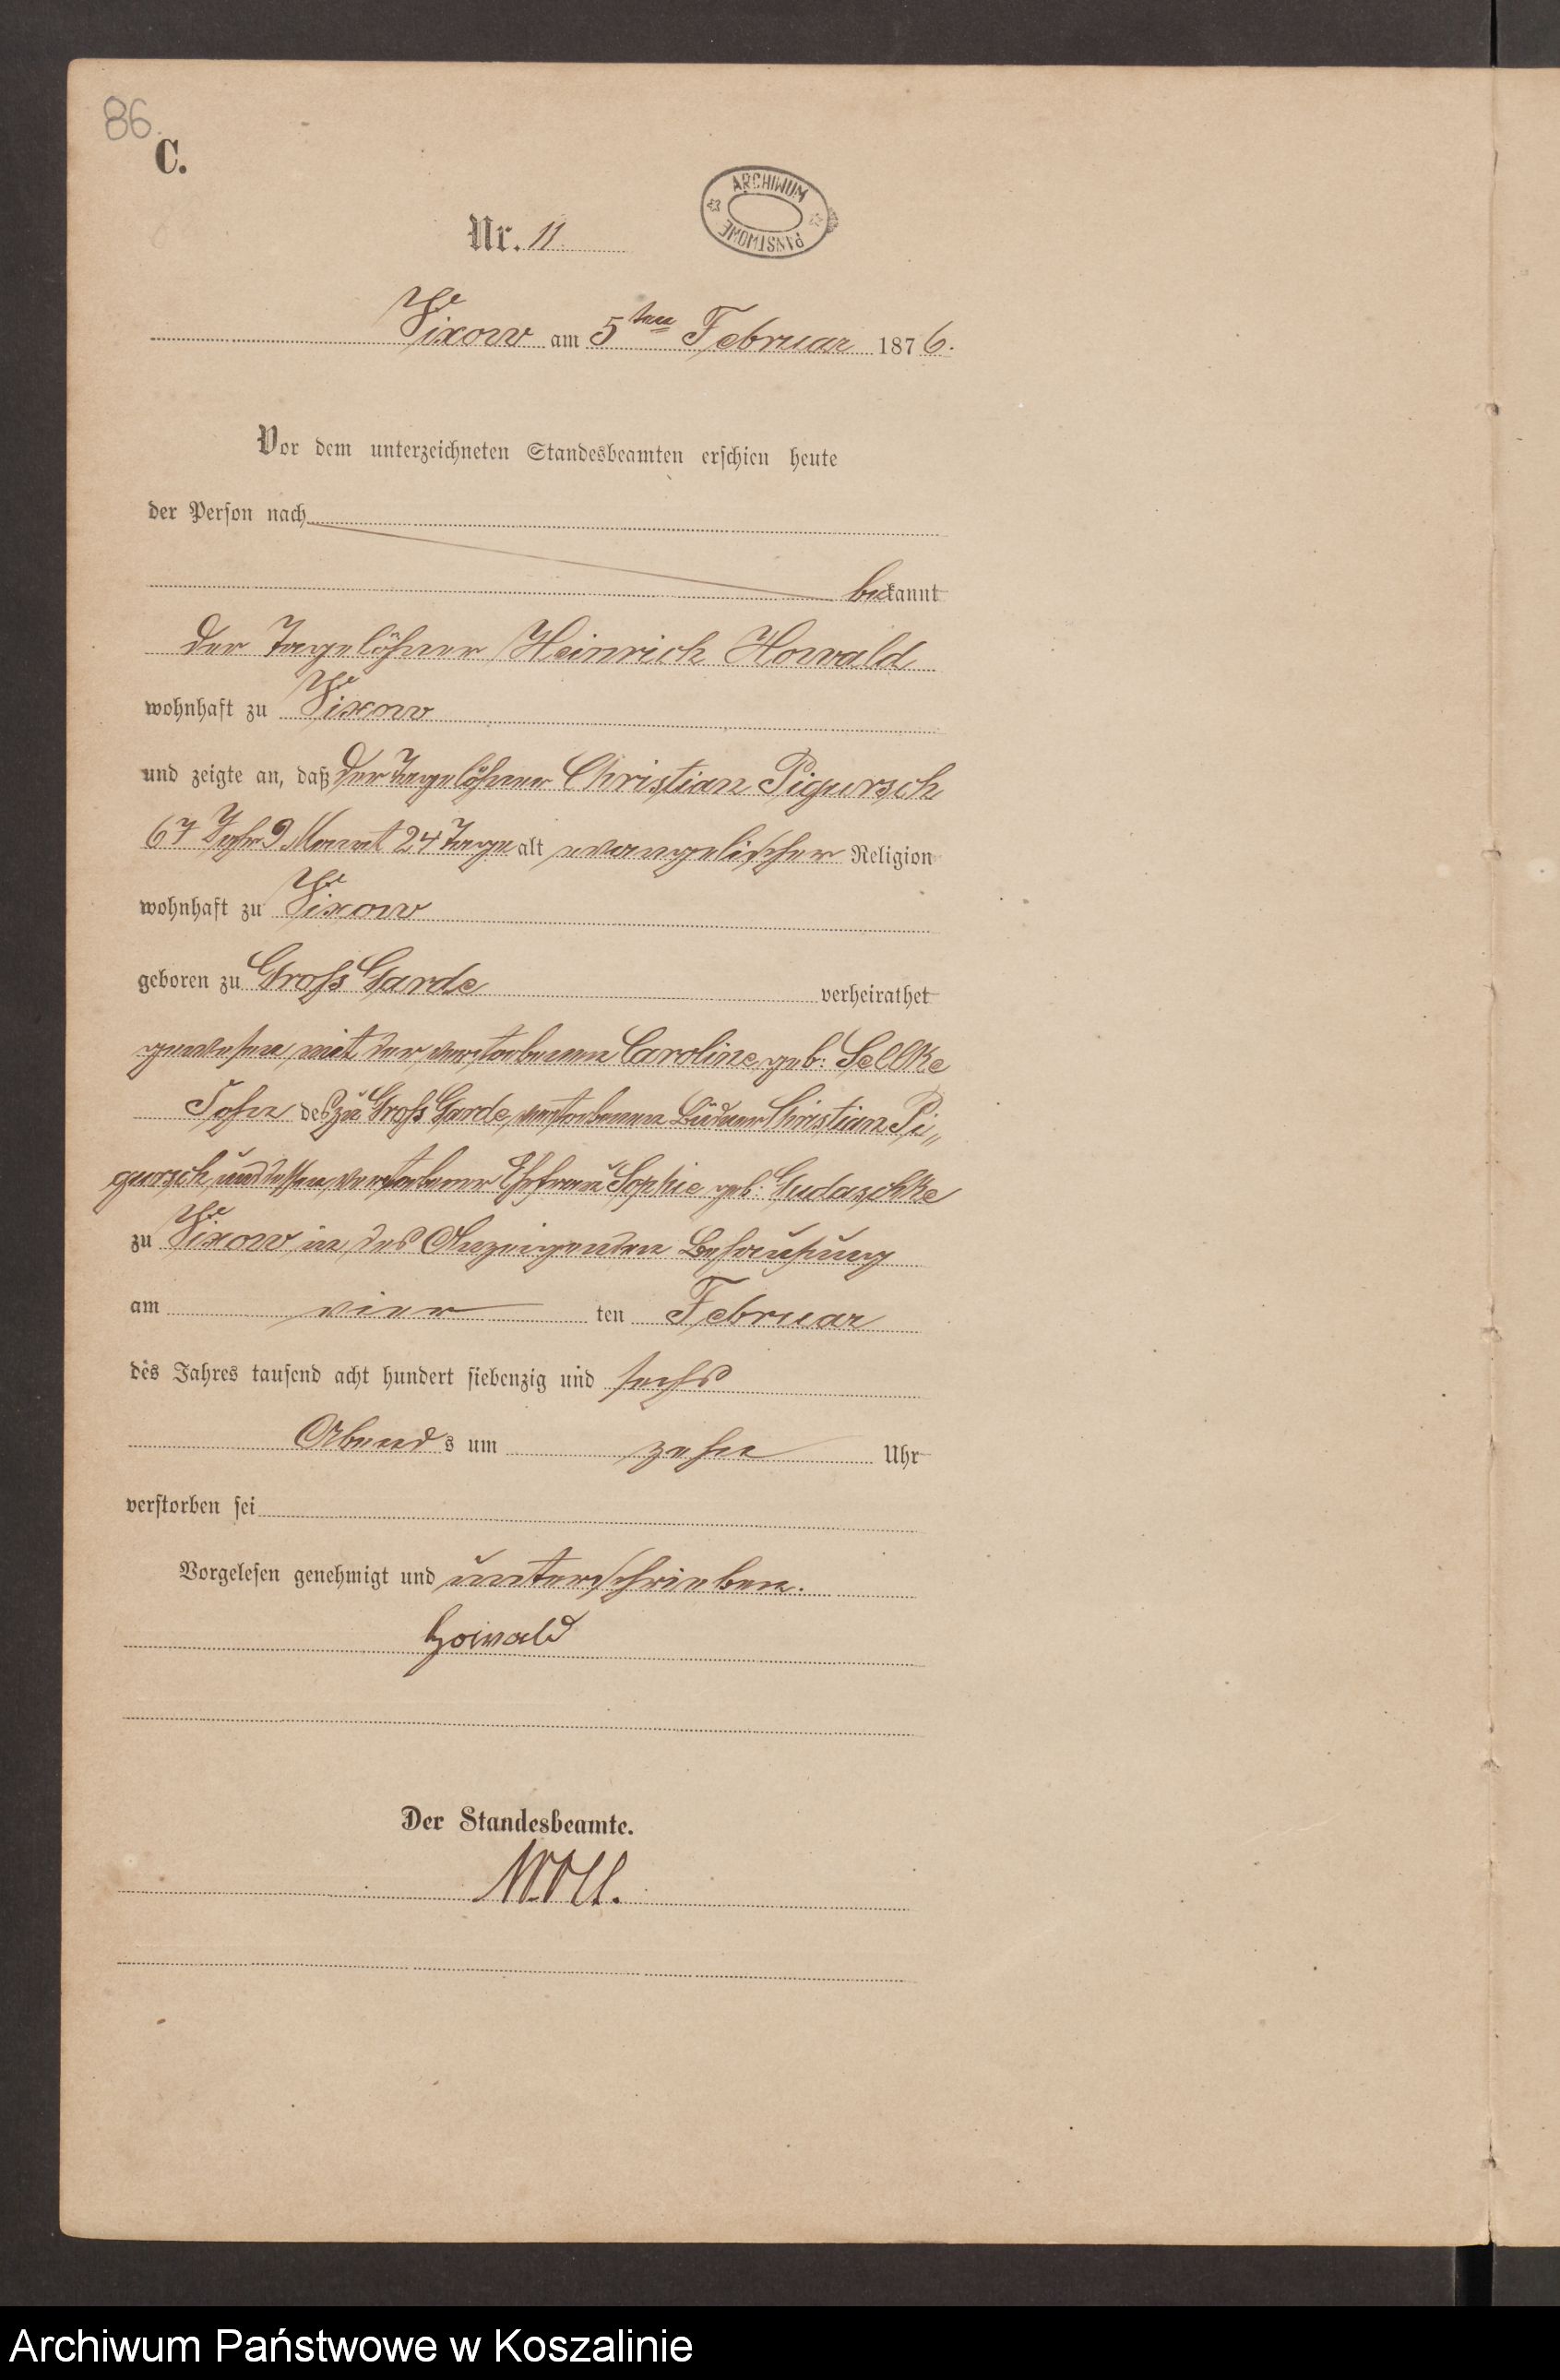 86.
C.
Nr. 11
ARCHIWUM PAŃSTWOWE
Wixow am 5ten Februar 1876.
Vor dem unterzeichneten Standesbeamten erschien heute
der Person nach
bekannt
der Tagelöhner Heinrich Howald
wohnhaft zu Wixow
und zeigte an, daß der Tagelöhner Christian Pigursch
67 Jahr 9 Monat 24 Tage alt evangelischer Religion
wohnhaft zu Wixow
geboren zu Groß Garde verheirathet
gewesen mit der verstorbenen Caroline geb: Sellke
Sohn des zu Groß Garde verstorbenen Büdner Christian Pi„
gursch und dessen verstorbener Ehefrau Sophie geb. Gudaschke
zu Wixow in des Anzeigenden Behausung
am vier ten Februar
des Jahres tausend acht hundert siebenzig und sechs
Abends um zehn Uhr
verstorben sei
Vorgelesen genehmigt und unterschrieben.
Howald
Der Standesbeamte.
Archiwum Państwowe w Koszalinie